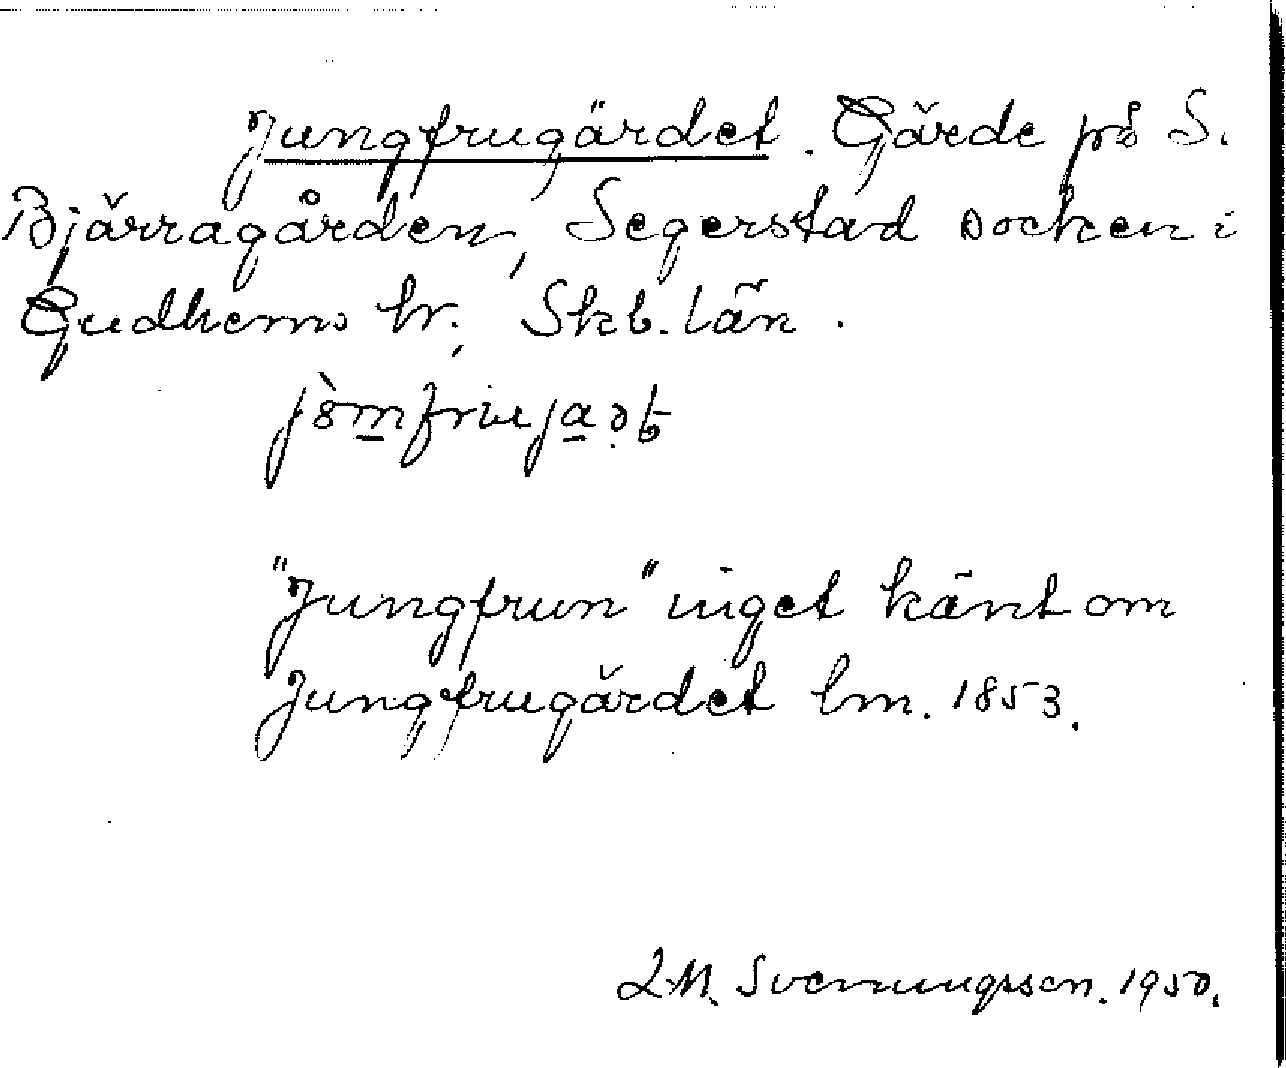 Jungfrugärdet. Gärde på S.
Bjärragården, Segerstad socken i
Gudhems hr., Skb. län.
"Jungfrun" inget känt om
Jungfrugärdet lm. 1853.
L M. Svenungsson. 1950.